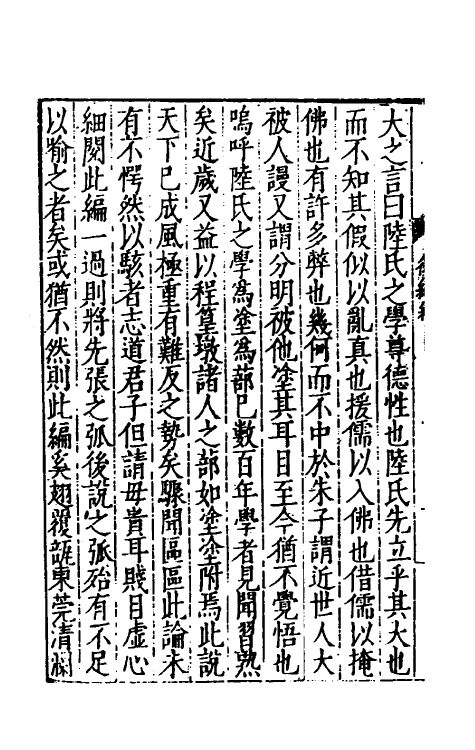 大之言曰陸氏之學尊德性也陸氏先立乎其大也
而不知其假似以亂真也援儒以入佛也借儒以掩
佛也有許多弊也幾何而不中於朱子謂近世人大
被人謾又謂分明被他塗其耳目至今猶不覺悟也
嗚呼陸氏之學為塗為蔀巳數百年學者見聞習熟
矣近歲又益以程篁墩諸人之蔀如塗塗附焉此說
天下已成風極重有難反之勢矣驟聞區區此論未
有不愕然以駭者志道君子但請毋貴耳賤目虛心
細閱此編一過則將先張之弧後說之弧殆有不足
以喻之者矣或猶不然則此編奚翅覆誰東莞清瀾